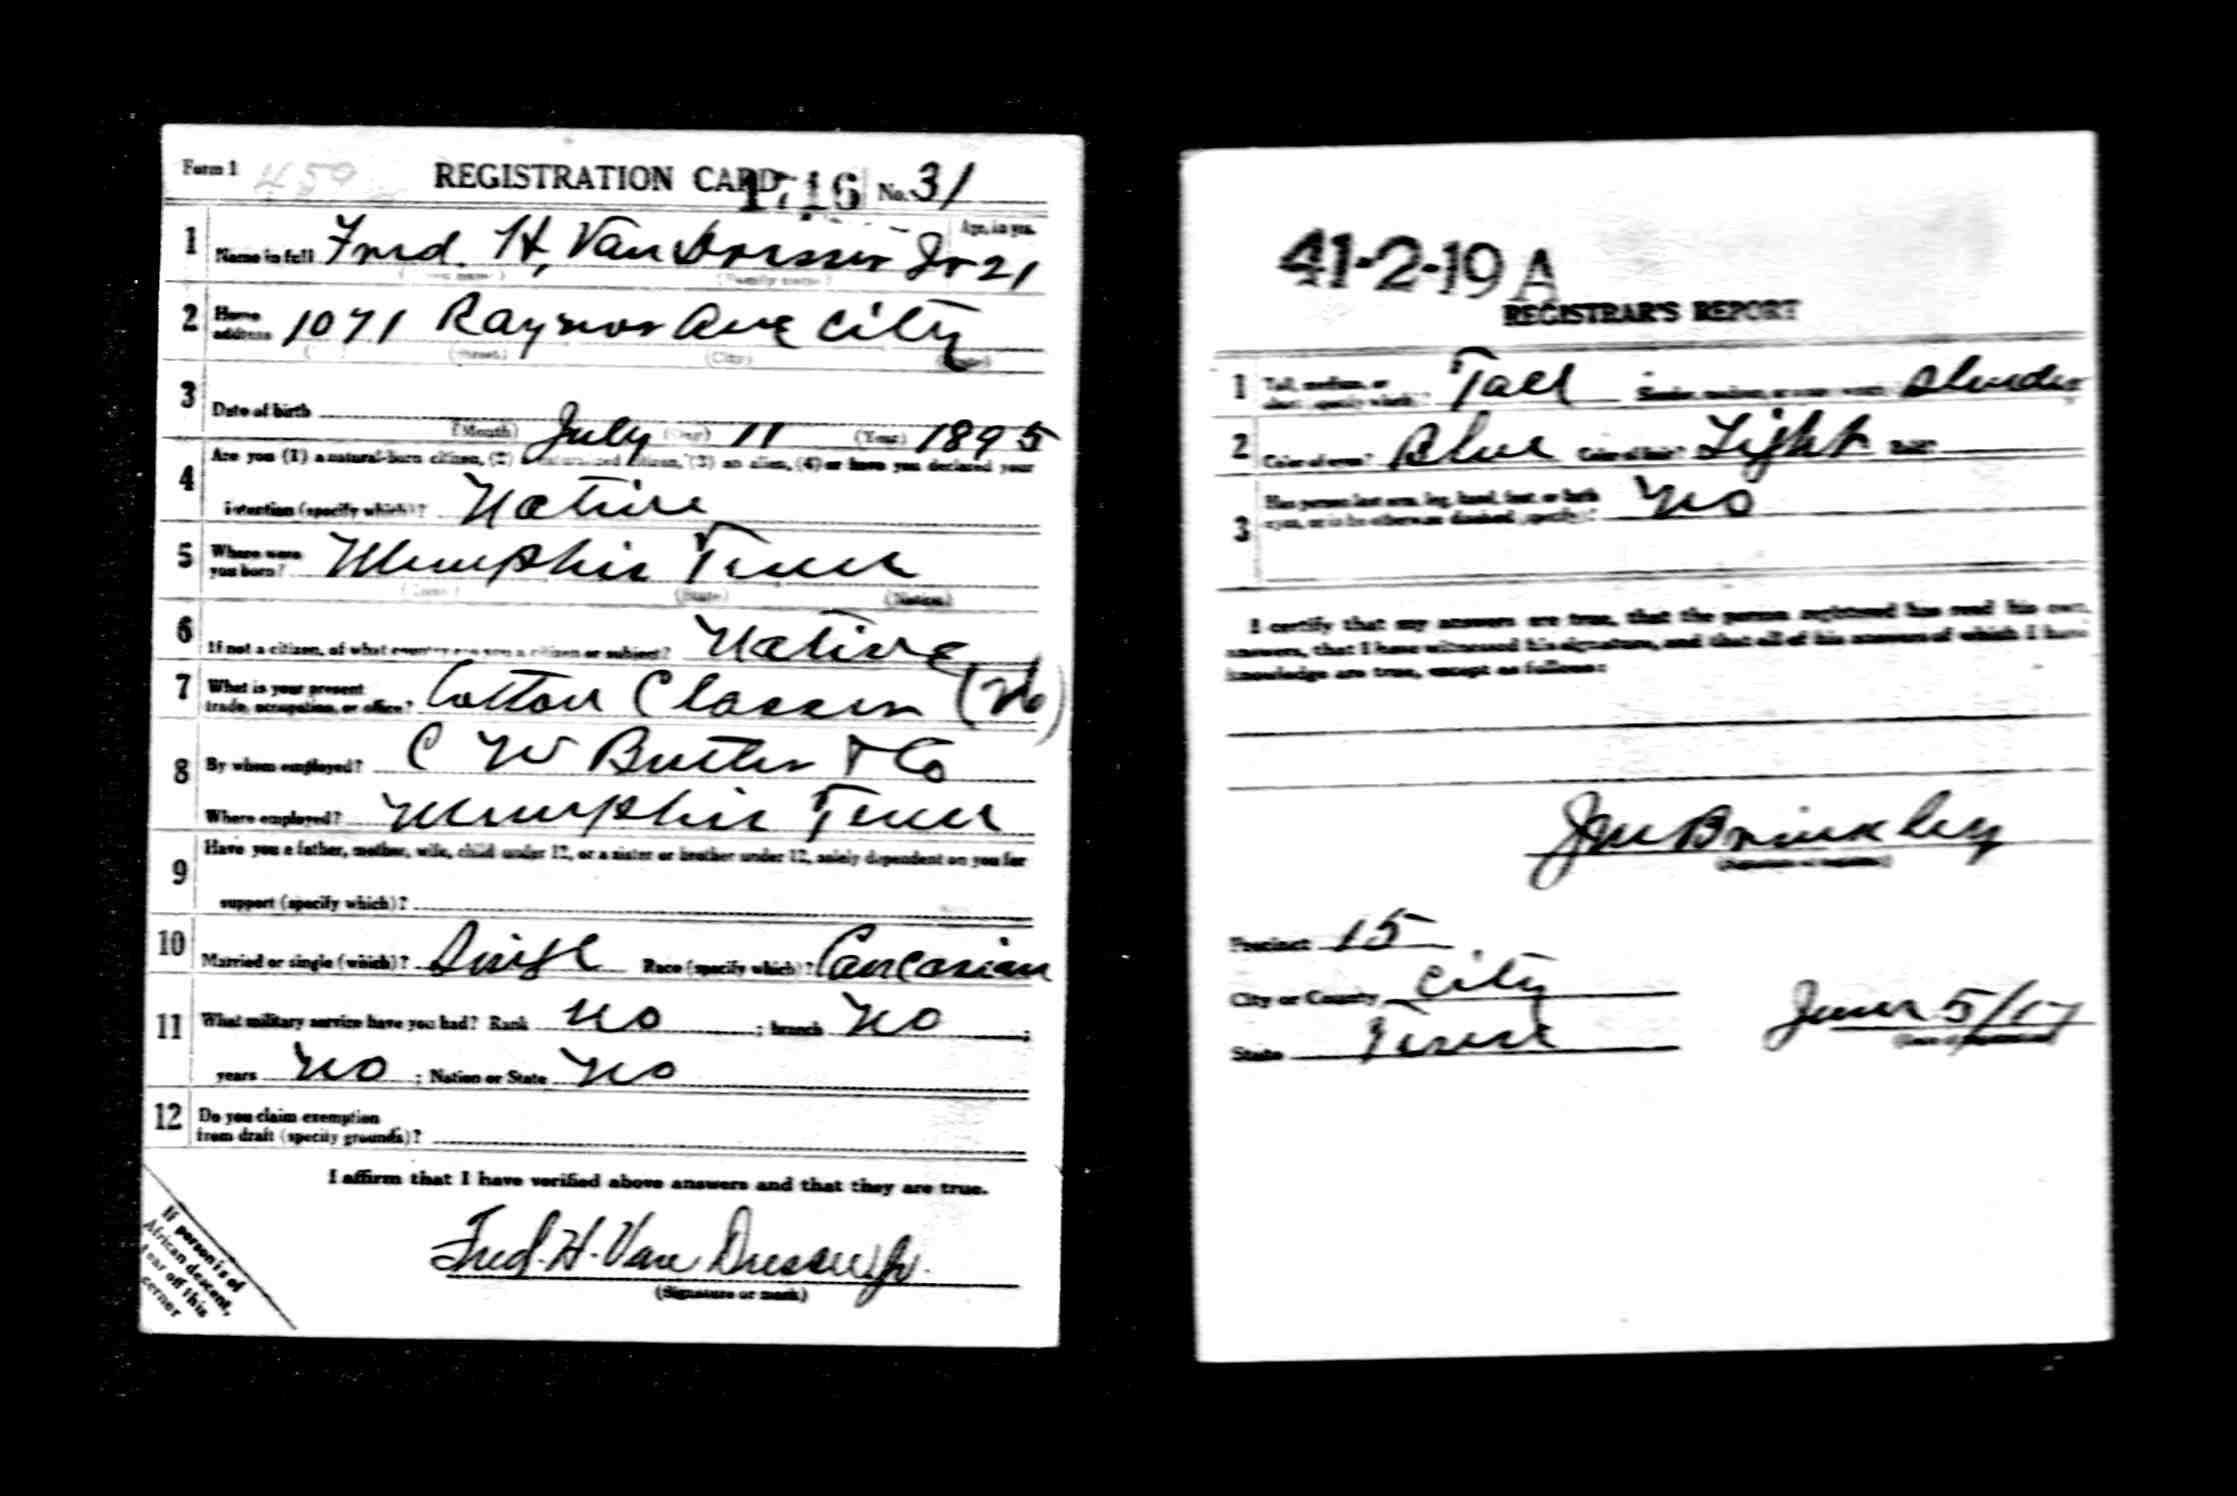 Form 1 459 REGISTRATION CARD 1716 No. 31
1 Name in full Fred. H, Van Dresser Jr 21 Age, in yrs.
(Family name)
2 Home address 1071 Raynor Ave City
(Street) (City) (State)
3 Date of birth July 11 1895
(Month) (Day) (Year)
4 Are you (1) a natural-born citizen, (2) a naturalized citizen, (3) an alien, (4) or have you declared your
intention (specify which)? Native
5 Where were you born? Memphis Tenn
(Town) (State) (Nation)
6 If not a citizen, of what country are you a citizen or subject? Native
7 What is your present trade, occupation, or office? Cotton Classer
8 By whom employed? C W Butler & Co
Where employed? Memphis Tenn
9 Have you a father, mother, wife, child under 12, or a sister or brother under 12, solely dependent on you for
support (specify which)?
10 Married or single (which)? Single Race (specify which)? Caucasian
11 What military service have you had? Rank no ; branch no ;
years no ; Nation or State no
12 Do you claim exemption from draft (specify grounds)?
I affirm that I have verified above answers and that they are true.
Fred. H. Van Dresser Jr.
(Signature or mark)
If person is of
African descent,
tear off this
corner
41-2-19 A
REGISTRAR'S REPORT
1 Tall, medium, or short (specify which)? Tall Slender, medium, or stout (which)? Slender
2 Color of eyes? Blue Color of hair? Light Bald?
3 Has person lost arm, leg, hand, foot, or both eyes, or is he otherwise disabled (specify)? No
I certify that my answers are true, that the person registered has read his own
answers, that I have witnessed his signature, and that all of his answers of which I have
knowledge are true, except as follows:
Brinkley
(Signature of registrar)
Precinct 15
City or County City
State Tenn June 5/17
(Date of registration)